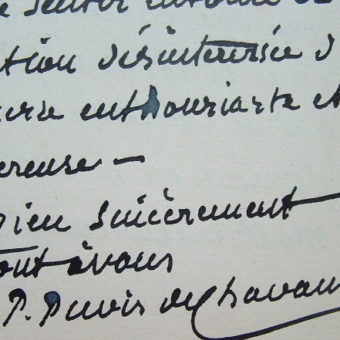 sentir entouré de
tion désintéressée d
enthousiaste et
ereuse —
ien sincèrement
tout à vous
P. Puvis de Chavan